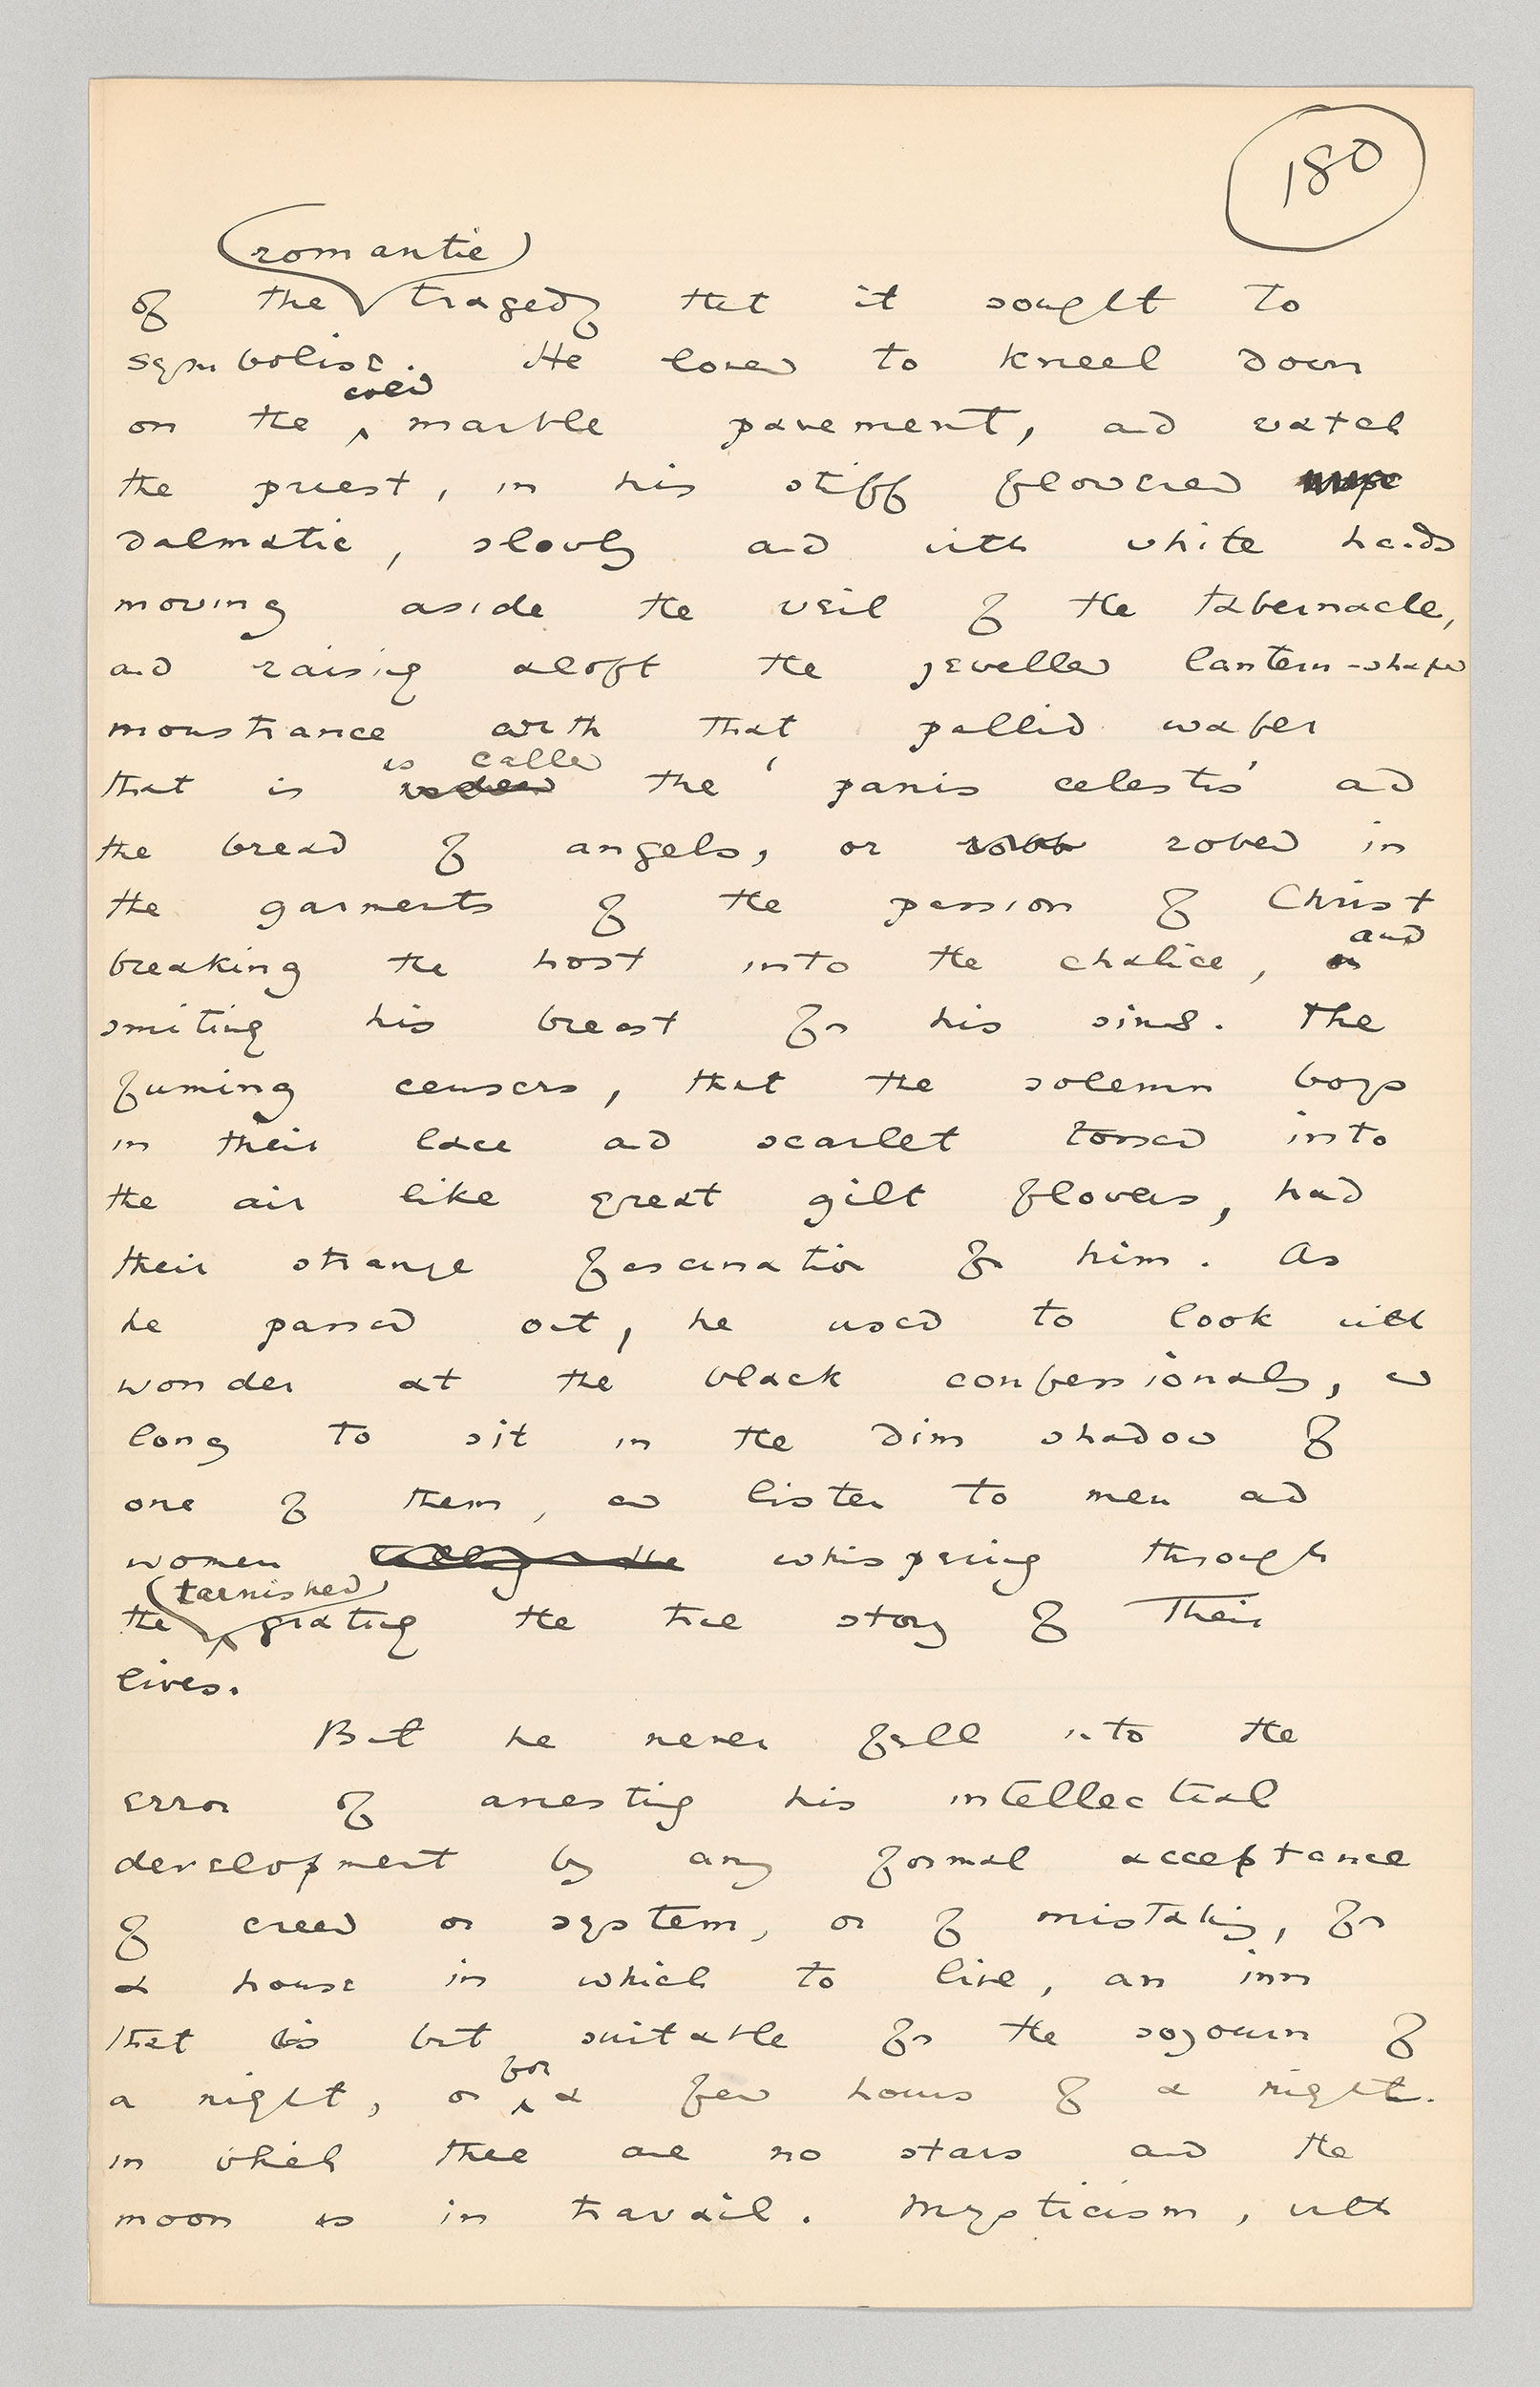 180
romantic
of the tragedy that it sought to
symbolise. He loved to kneel down
cold
on the marble pavement, and watch
the priest, in his stiff flowered
dalmatic, slowly and with white hands
moving aside the veil of the tabernacle,
and raising aloft the jewelled lantern-shaped
monstrance with that pallid wafer
is called
that is the 'panis celestis' and
the bread of angels, or robed in
the garments of the passion of Christ
and
breaking the host into the chalice, or
smiting his breast for his sins. The
fuming censers, that the solemn boys
in their lace and scarlet tossed into
the air like great gilt flowers, had
their strange fascination for him. As
he passed out, he used to look with
wonder at the black confessionals, and
long to sit in the dim shadow of
one of them, and listen to men and
women whispering through
tarnished
the grating the true story of their
lives.
But he never fell into the
error of arresting his intellectual
development by any formal acceptance
of creed or system, or of mistaking, for
a house in which to live, an inn
that is but suitable for the sojourn of
for
a night, or a few hours of a night.
in which there are no stars and the
moon is in travail. Mysticism, with